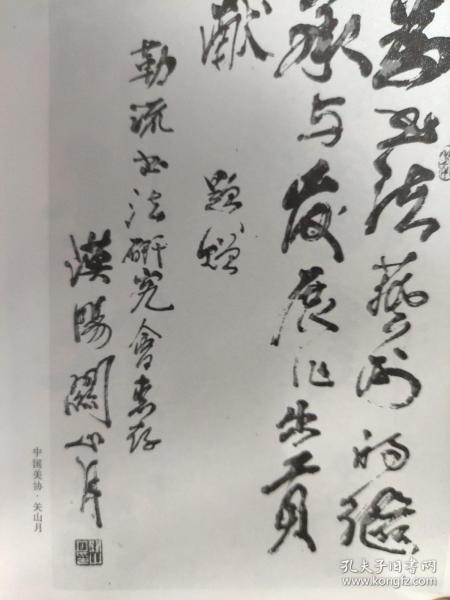 為書法藝術的繼
承与發展作出貢
献
題贈
勒流書法研究會惠存
漠陽關山月
中国美协·关山月
孔夫子旧书网
www.kongfz.com